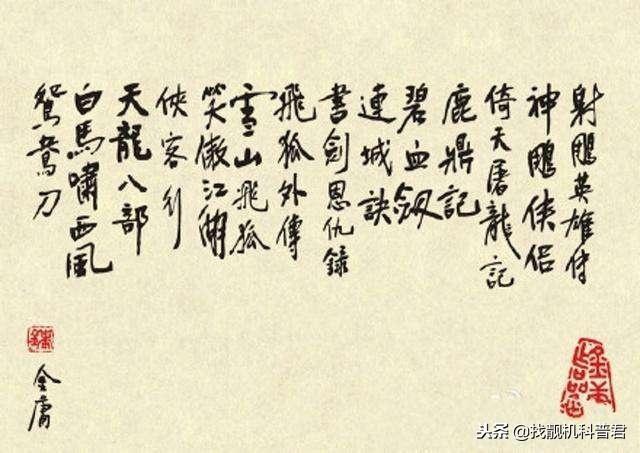 射鵰英雄传
神鵰侠侣
倚天屠龍記
鹿鼎記
碧血劒
連城訣
書劍恩仇録
飛狐外傳
雪山飛狐
笑傲江湖
俠客行
天龍八部
白馬嘯西風
鴛鴦刀
金庸
头条 @找靓机科普君